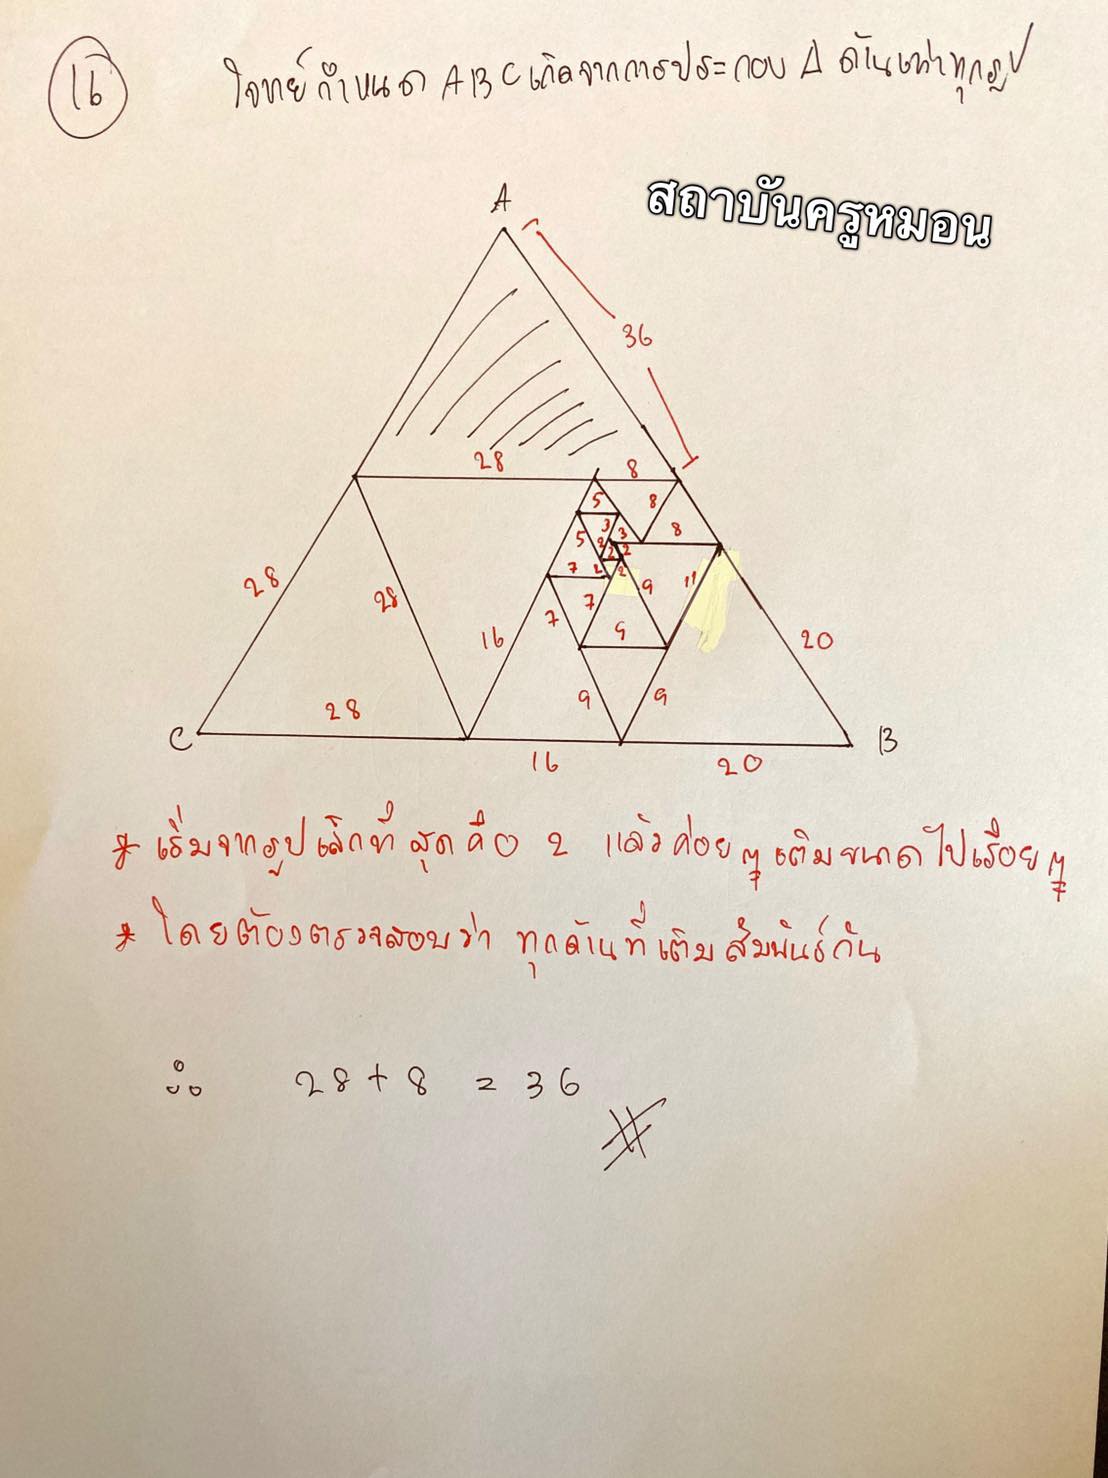 16
โจทย์กำหนด ABC เกิดจากการประกอบ Δ ด้านเท่าทุกรูป
สถาบันครูหมอน
A
36
28 8
5 8
3 3 8
5 2 2 2
7 2 2 9 11
28 28 7 7
16 9 20
9 9
28
C B
16 20
* เริ่มจากรูปเล็กที่สุดคือ 2 แล้วค่อยๆ เติมขนาดไปเรื่อยๆ
* โดยต้องตรวจสอบว่า ทุกด้านที่เติมสัมพันธ์กัน
∴ 28 + 8 = 36